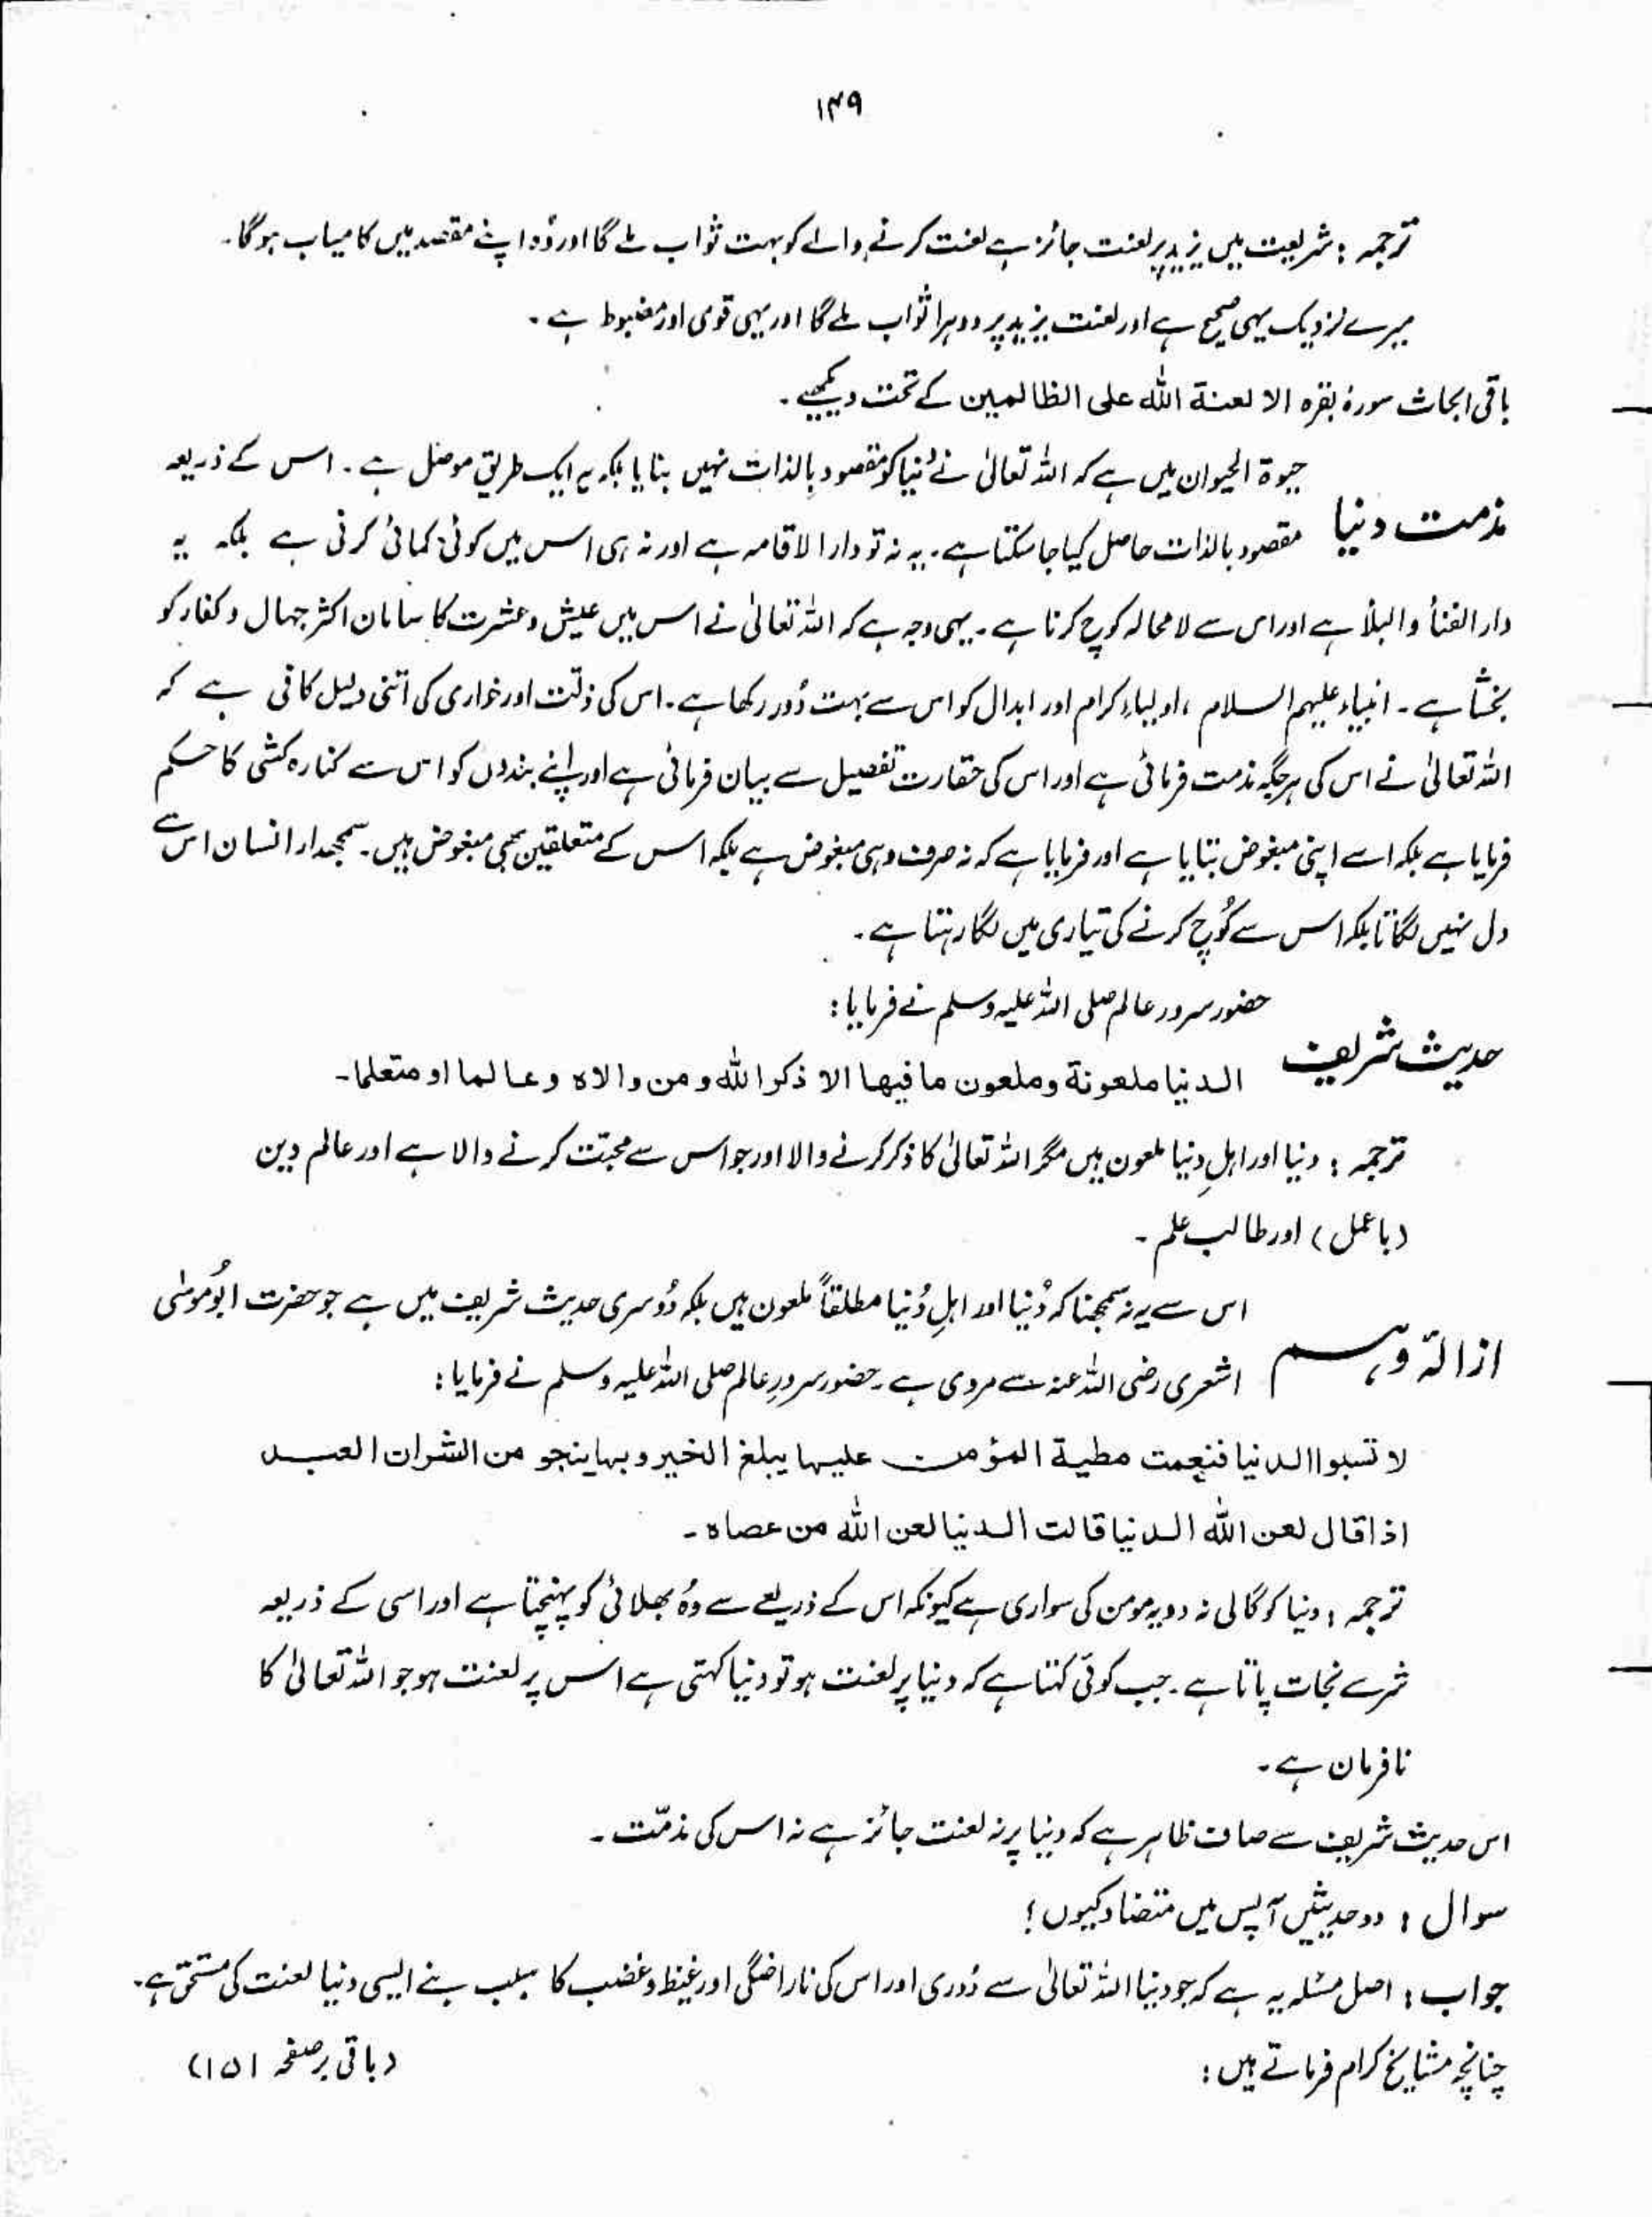 ۱۴۹
ترجمہ : شریعت میں یزید پر لعنت جائز ہے لعنت کرنے والے کو بہت ثواب ملے گا اور وُہ اپنے مقصد میں کامیاب ہوگا۔
میرے نزدیک یہی صحیح ہے اور لعنت یزید پر دوہرا ثواب ملے گا اور یہی قوی اور مضبوط ہے ۔
باقی ابحاث سورۂ بقرہ الا لعنة الله علی الظالمین کے تحت دیکھیے ۔
حیوۃ الحیوان میں ہے کہ اللہ تعالیٰ نے دُنیا کو مقصود بالذات نہیں بنایا بلکہ یہ ایک طریق موصل ہے ۔ اس کے ذریعہ
مذمت دنیا مقصود بالذات حاصل کیا جاسکتا ہے ۔ یہ نہ تو دار الاقامہ ہے اور نہ ہی اس میں کوئی کمائی کرنی ہے بلکہ یہ
دار الفنأ والبلأ ہے اور اس سے لامحالہ کوچ کرنا ہے ۔ یہی وجہ ہے کہ اللہ تعالیٰ نے اس میں عیش و عشرت کا سامان اکثر جہال و کفار کو
بخشا ہے ۔ انبیاء علیہم السلام ، اولیاء کرام اور ابدال کو اس سے بہت دُور رکھا ہے ۔ اس کی ذلّت اور خواری کی اتنی دلیل کافی ہے کہ
اللہ تعالیٰ نے اس کی ہر جگہ مذمت فرمائی ہے اور اس کی حقارت تفصیل سے بیان فرمائی ہے اور اپنے بندوں کو اس سے کنارہ کشی کا حکم
فرمایا ہے بلکہ اسے اپنی مبغوض بتایا ہے اور فرمایا ہے کہ نہ صرف وہی مبغوض ہے بلکہ اس کے متعلقین بھی مبغوض ہیں ۔ سمجھدار انسان اس سے
دل نہیں لگاتا بلکہ اس سے کُوچ کرنے کی تیاری میں لگا رہتا ہے ۔
حضور سرور عالم صلی اللہ علیہ وسلم نے فرمایا :
حدیث شریف الدنیا ملعونة وملعون ما فیها الا ذکر الله و من والاہ وعالما او متعلما۔
ترجمہ : دنیا اور اہلِ دنیا ملعون ہیں مگر اللہ تعالیٰ کا ذکر کرنے والا اور جو اس سے محبّت کرنے والا ہے اور عالم دین
(باعمل) اور طالب علم ۔
اس سے یہ نہ سمجھنا کہ دُنیا اور اہلِ دُنیا مطلقاً ملعون ہیں بلکہ دُوسری حدیث شریف میں ہے جو حضرت ابُو موسٰی
ازالۂ وہم اشعری رضی اللہ عنہ سے مروی ہے ۔ حضور سرورِ عالم صلی اللہ علیہ وسلم نے فرمایا :
لا تسبوا الدنیا فنعمت مطیة المؤمن علیها یبلغ الخیر و بها ینجو من الشر ان العبد
اذا قال لعن الله الدنیا قالت الدنیا لعن الله من عصاہ ۔
ترجمہ : دنیا کو گالی نہ دو یہ مومن کی سواری ہے کیونکہ اس کے ذریعے سے وُہ بھلائی کو پہنچتا ہے اور اسی کے ذریعہ
شر سے نجات پاتا ہے ۔ جب کوئی کہتا ہے کہ دنیا پر لعنت ہو تو دنیا کہتی ہے اس پر لعنت ہو جو اللہ تعالیٰ کا
نافرمان ہے ۔
اس حدیث شریف سے صاف ظاہر ہے کہ دنیا پر نہ لعنت جائز ہے نہ اس کی مذمّت ۔
سوال : دو حدیثیں آپس میں متضاد کیوں ؟
جواب : اصل مسئلہ یہ ہے کہ جو دنیا اللہ تعالیٰ سے دُوری اور اس کی ناراضگی اور غیظ و غضب کا سبب بنے ایسی دنیا لعنت کی مستحق ہے ۔
چنانچہ مشایخ کرام فرماتے ہیں : (باقی بر صفحہ ۱۵۱)